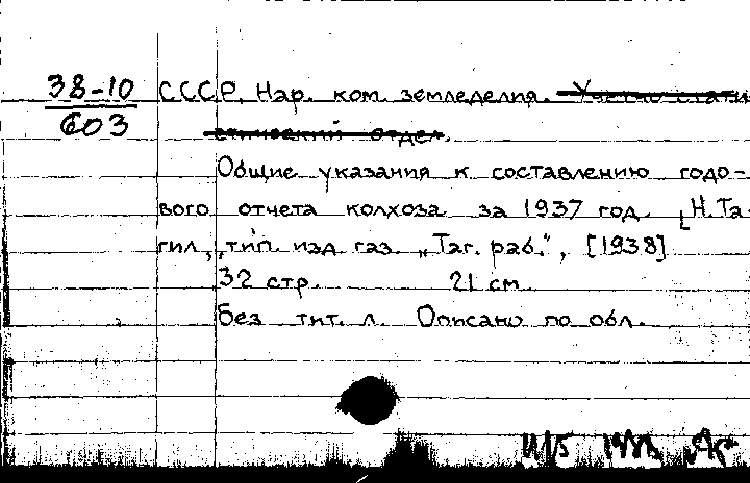 38-10
603
СССР. Нар. ком. земледелия. Учетно-стати-
стический отдел.
Общие указания к составлению годо-
вого отчета колхоза за 1937 год. [Н. Та-
гил, тип. изд. газ. „Таг. раб.", [1938]
32 стр. 21 см.
Без тит. л. Описано по обл.